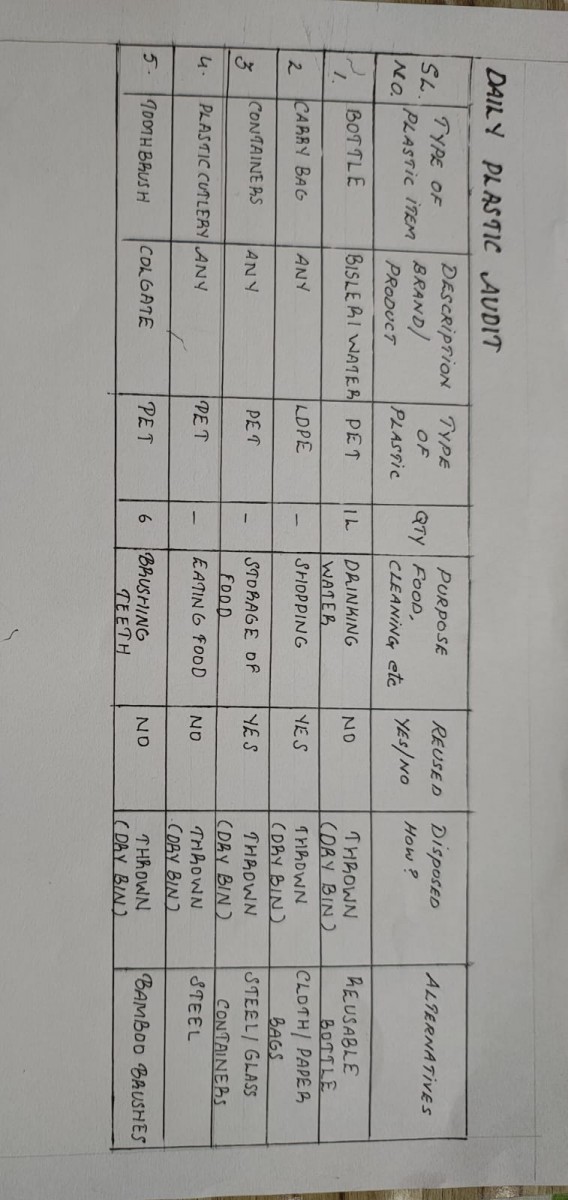 DAILY PLASTIC AUDIT
SL. NO. | TYPE OF PLASTIC ITEM | DESCRIPTION BRAND/ PRODUCT | TYPE OF PLASTIC | QTY | PURPOSE FOOD, CLEANING etc | REUSED YES/NO | Disposed How? | ALTERNATIVES
1. | BOTTLE | BISLERI WATER | PET | 1L | DRINKING WATER | NO | THROWN (DRY BIN) | REUSABLE BOTTLE
2 | CARRY BAG | ANY | LDPE | - | SHOPPING | YES | THROWN (DRY BIN) | CLOTH/PAPER BAGS
3 | CONTAINERS | ANY | PET | - | STORAGE OF FOOD | YES | THROWN (DRY BIN) | STEEL/GLASS CONTAINERS
4. | PLASTIC CUTLERY | ANY | PET | - | EATING FOOD | NO | THROWN (DRY BIN) | STEEL
5. | TOOTHBRUSH | COLGATE | PET | 6 | BRUSHING TEETH | NO | THROWN (DRY BIN) | BAMBOO BRUSHES